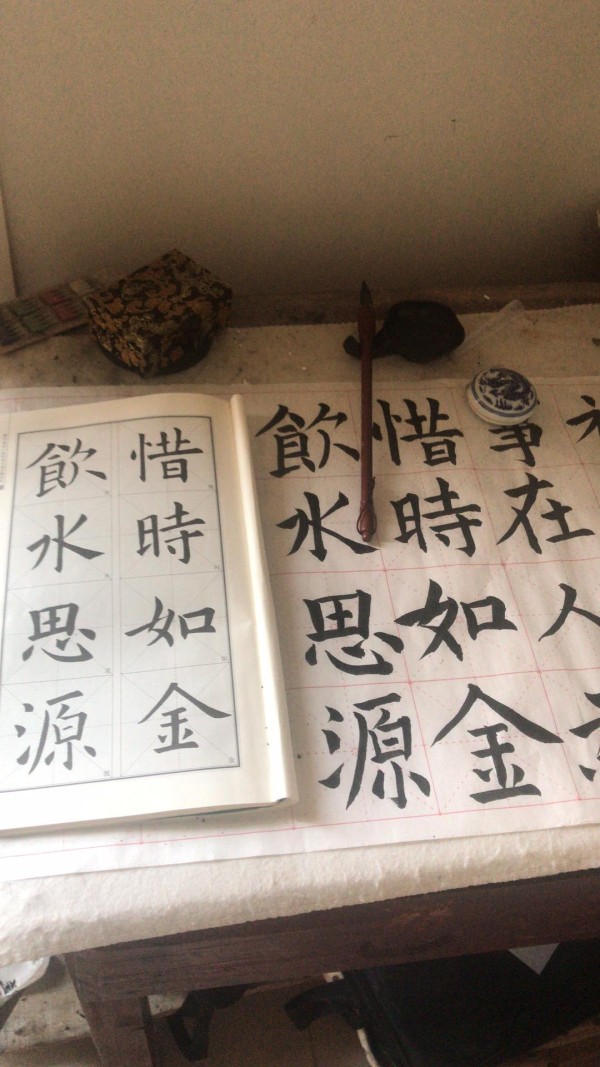 惜時如金
飲水思源
事在人
惜時如金
飲水思源